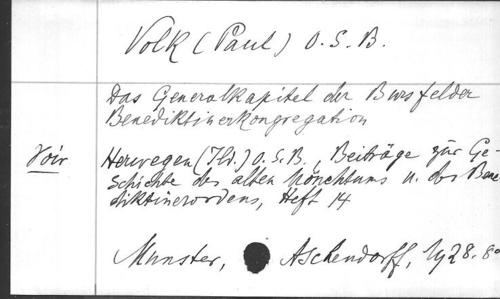 Volk (Paul) O. S. B.
Das Generalkapitel der Bursfelder
Benediktinerkongregation
Voir Herwegen (Ild.) O. S. B., Beiträge zur Ge-
schichte des alten Mönchtums u. des Bene
diktinerordens, Heft 14
Münster, Aschendorff, 1928. 8°